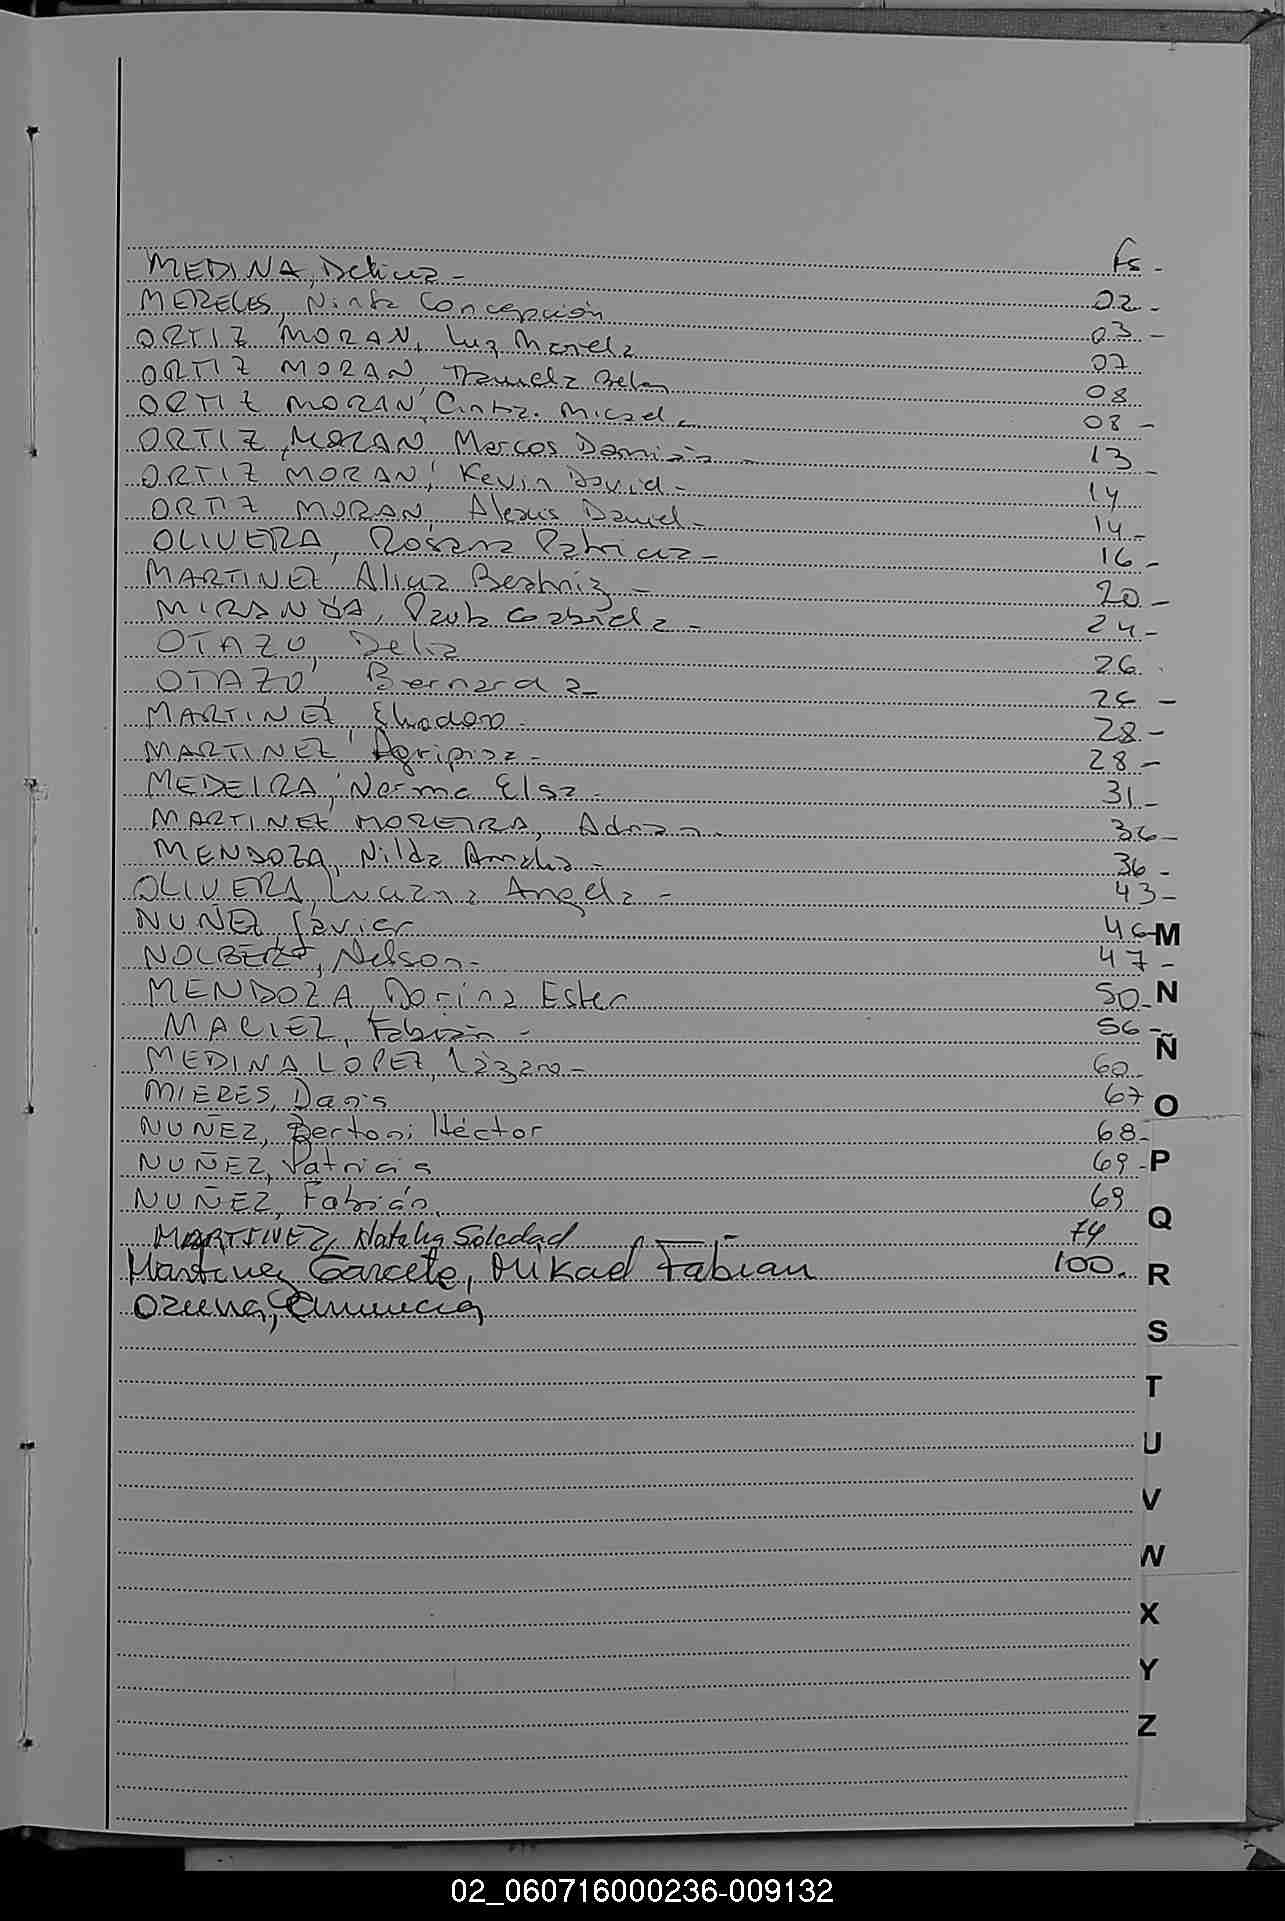 Fs -
MEDINA, Delicia - 02 -
MERELES, Ninfa Concepción 03 -
ORTIZ MORAN, Luz Mariela 07
ORTIZ MORAN Daniela Belen 08
ORTIZ MORAN, Cintia Micaela 08 -
ORTIZ MORAN, Marcos Damián - 13 -
ORTIZ MORAN, Kevin David - 14
ORTIZ MORAN, Alexis Daniel - 14 -
OLIVERA, Rosana Patricia - 16 -
MARTINEZ Alicia Beatriz - 20 -
MIRANDA, Paula Gabriela - 24 -
OTAZO, Delia 26
OTAZO, Bernarda - 26 -
MARTINEZ, Eliodoro - 28 -
MARTINEZ, Agripina - 28 -
MEDEIRA, Norma Elsa - 31 -
MARTINEZ MOREIRA, Adrian - 36 -
MENDOZA, Nilda Amalia - 36 -
OLIVERA, Luciana Angela - 43 -
NUÑEZ Javier 46 -
NOLBERTO, Nelson - 47 -
MENDOZA Dorina Ester 50 -
MACIEZ, Fabián - 56 -
MEDINA LOPEZ, Lázaro - 60
MIERES, Danis 67
NUÑEZ, Bertoni Héctor 68 -
NUÑEZ, Patricia 69 -
NUÑEZ, Fabián. 69
MARTINEZ, Natalia Soledad 74
Martinez Garcete, Mikael Fabian 100.
Ozuna,
M
N
Ñ
O
P
Q
R
S
T
U
V
W
X
Y
Z
02_060716000236-009132